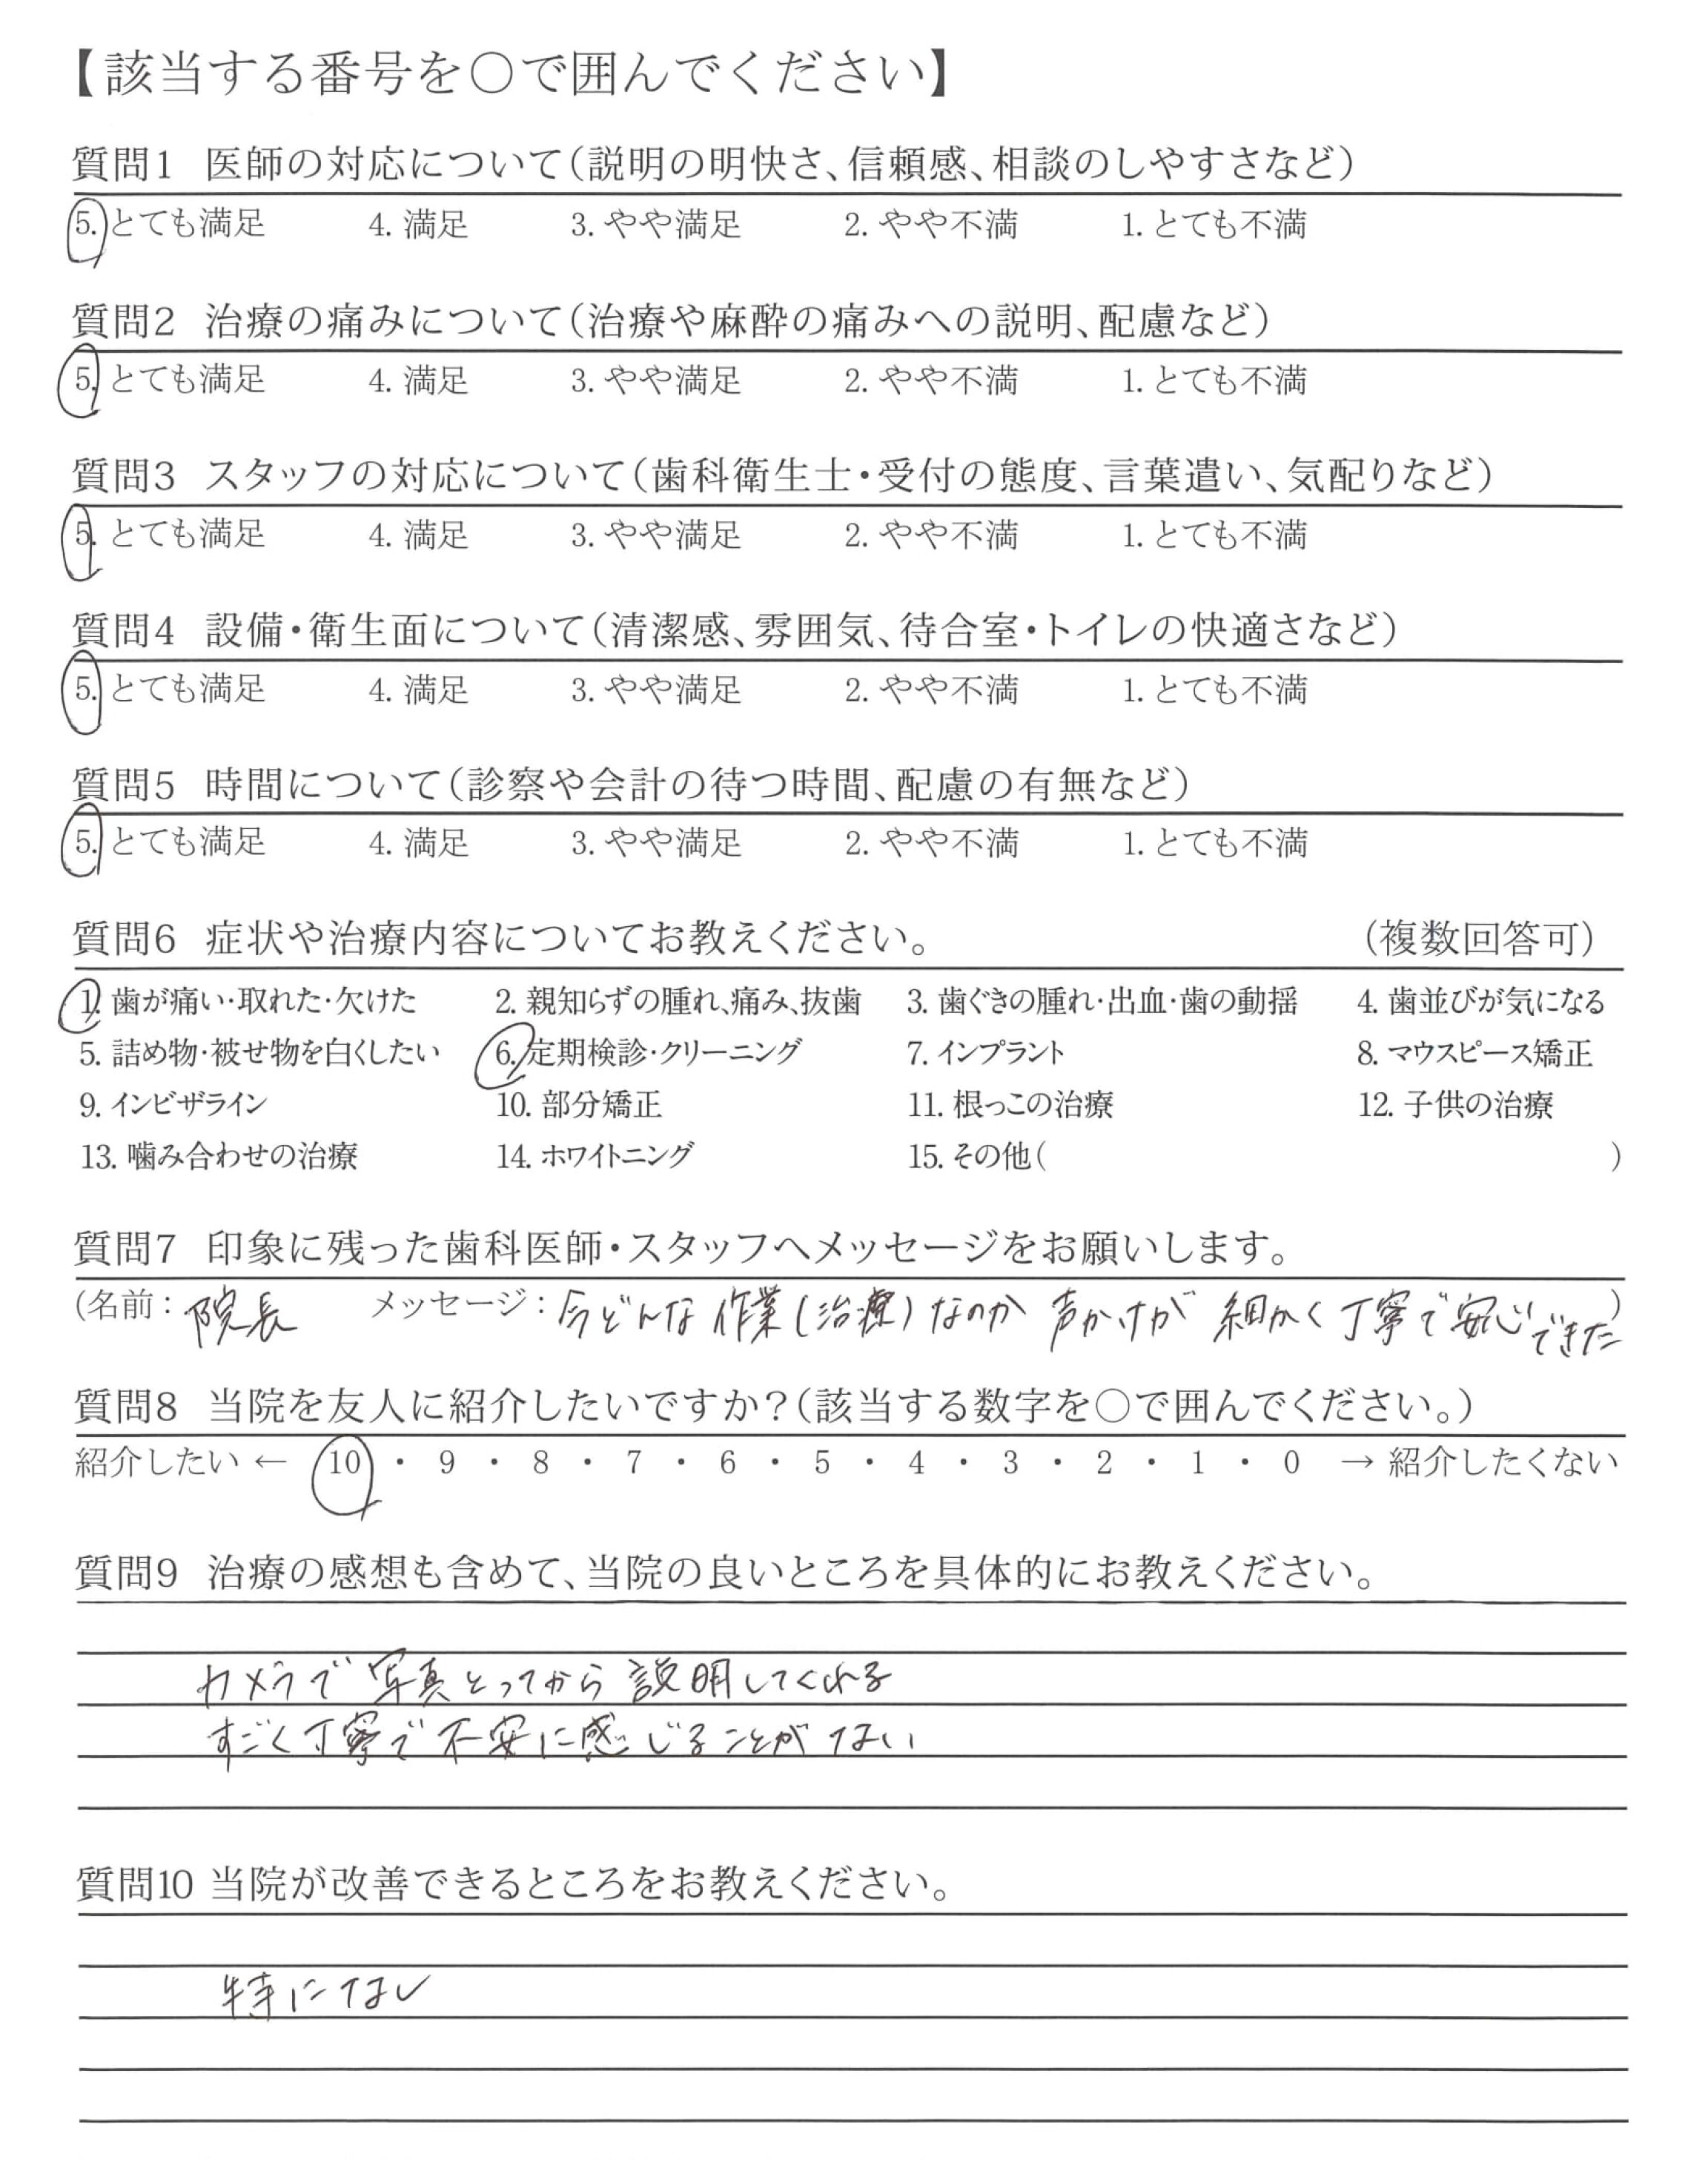 【該当する番号を○で囲んでください】
質問1 医師の対応について(説明の明快さ、信頼感、相談のしやすさなど)
5. とても満足 4. 満足 3. やや満足 2. やや不満 1. とても不満
質問2 治療の痛みについて(治療や麻酔の痛みへの説明、配慮など)
5. とても満足 4. 満足 3. やや満足 2. やや不満 1. とても不満
質問3 スタッフの対応について(歯科衛生士・受付の態度、言葉遣い、気配りなど)
5. とても満足 4. 満足 3. やや満足 2. やや不満 1. とても不満
質問4 設備・衛生面について(清潔感、雰囲気、待合室・トイレの快適さなど)
5. とても満足 4. 満足 3. やや満足 2. やや不満 1. とても不満
質問5 時間について(診察や会計の待つ時間、配慮の有無など)
5. とても満足 4. 満足 3. やや満足 2. やや不満 1. とても不満
質問6 症状や治療内容についてお教えください。 (複数回答可)
1. 歯が痛い・取れた・欠けた 2. 親知らずの腫れ、痛み、抜歯 3. 歯ぐきの腫れ・出血・歯の動揺 4. 歯並びが気になる
5. 詰め物・被せ物を白くしたい 6. 定期検診・クリーニング 7. インプラント 8. マウスピース矯正
9. インビザライン 10. 部分矯正 11. 根っこの治療 12. 子供の治療
13. 噛み合わせの治療 14. ホワイトニング 15. その他( )
質問7 印象に残った歯科医師・スタッフへメッセージをお願いします。
(名前：院長 メッセージ：今どんな作業(治療)なのか 声かけが 細かく丁寧で安心できた)
質問8 当院を友人に紹介したいですか？(該当する数字を○で囲んでください。)
紹介したい ← 10 ・ 9 ・ 8 ・ 7 ・ 6 ・ 5 ・ 4 ・ 3 ・ 2 ・ 1 ・ 0 → 紹介したくない
質問9 治療の感想も含めて、当院の良いところを具体的にお教えください。
カメラで写真とってから説明してくれる
すごく丁寧で不安に感じることがない
質問10 当院が改善できるところをお教えください。
特になし